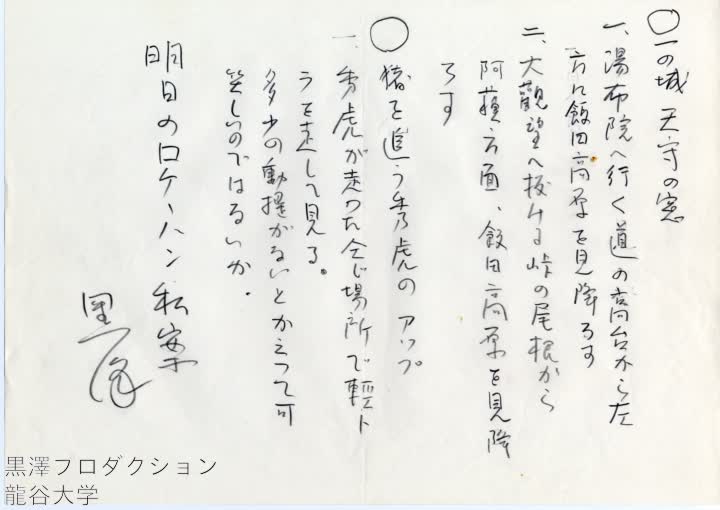 ○一の城 天守の窓
一、湯布院へ行く道の高台から左
方に飯田高原を見降ろす
二、大観望へ抜ける峠の尾根から
阿蘇方面、飯田高原を見降
ろす
○猪を追う秀虎のアップ
一、秀虎が走った仝じ場所で軽ト
ラを走して見る。
多少の動揺がないとかえって可
笑しいのではないか.
明日のロケーハン私案
黒澤
黒澤プロダクション
龍谷大学